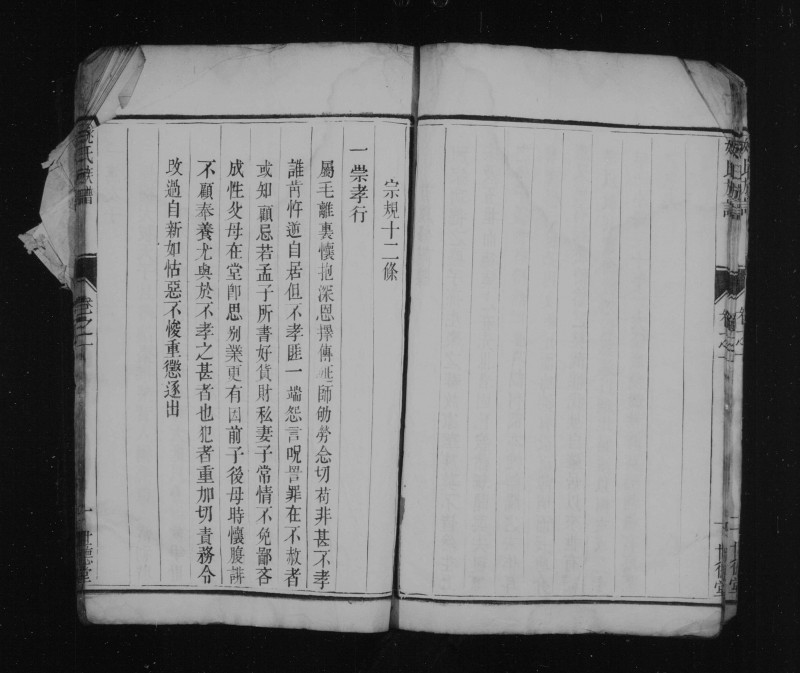 宗規十二條
一崇孝行
屬毛離裏懷抱深恩擇傅延師劬勞念切苟非甚不孝
誰肯忤逆自居但不孝匪一端怨言咒詈罪在不赦者
或知顧忌若孟子所書好貨財私妻子常情不免鄙吝
成性父母在堂即思別業更有因前子後母時懷腹誹
不顧奉養尤與於不孝之甚者也犯者重加切責務令
改過自新如怙惡不悛重懲逐出
氏族譜
卷之一
一
世德堂